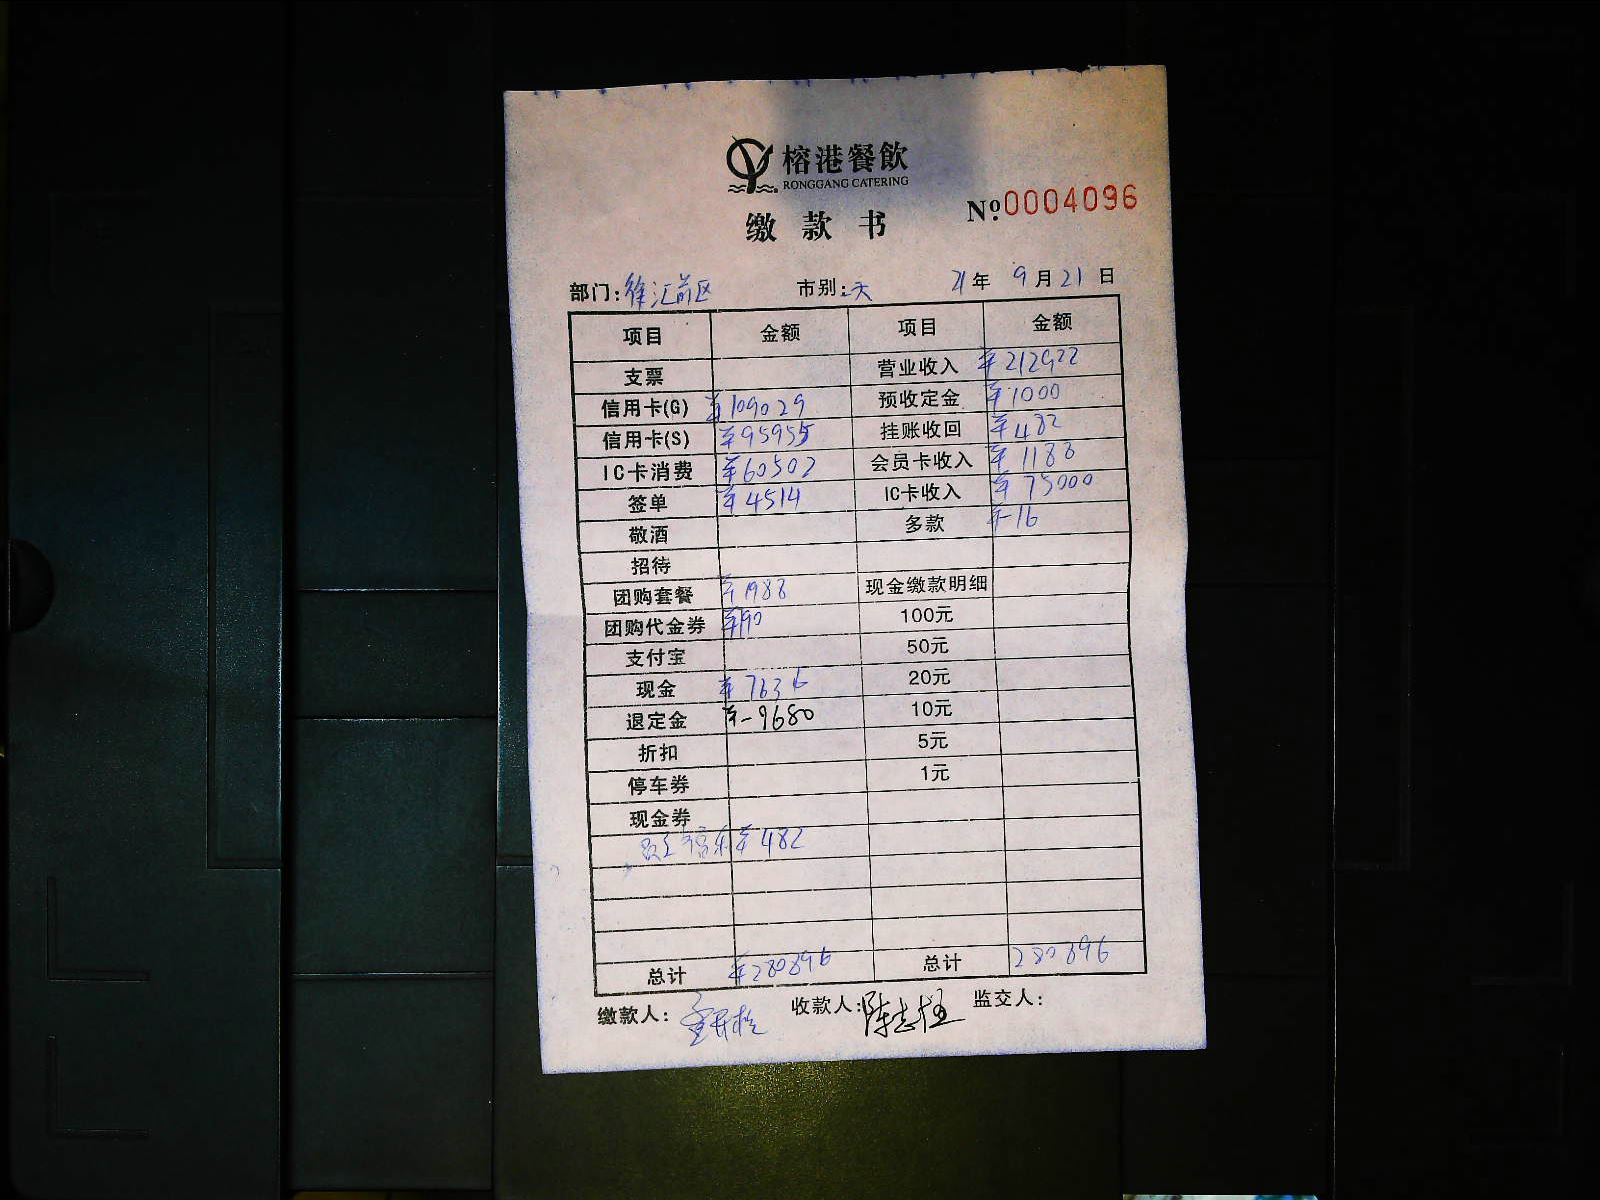 榕港餐飲
RONGGANG CATERING
缴款书
№0004096
部门:徐汇前区 市别:天 21年 9月21日
项目 金额 项目 金额
支票 营业收入 ¥212922
信用卡(G) ¥109029 预收定金 ¥1000
信用卡(S) ¥95955 挂账收回 ¥482
IC卡消费 ¥60502 会员卡收入 ¥1188
签单 ¥4514 IC卡收入 ¥75000
敬酒 多款 ¥-16
招待
团购套餐 ¥1988 现金缴款明细
团购代金券 ¥190 100元
支付宝 50元
现金 ¥7636 20元
退定金 ¥-9680 10元
折扣 5元
停车券 1元
现金券
¥482
总计 ¥280896 总计 280896
缴款人: 收款人:陈志 监交人: